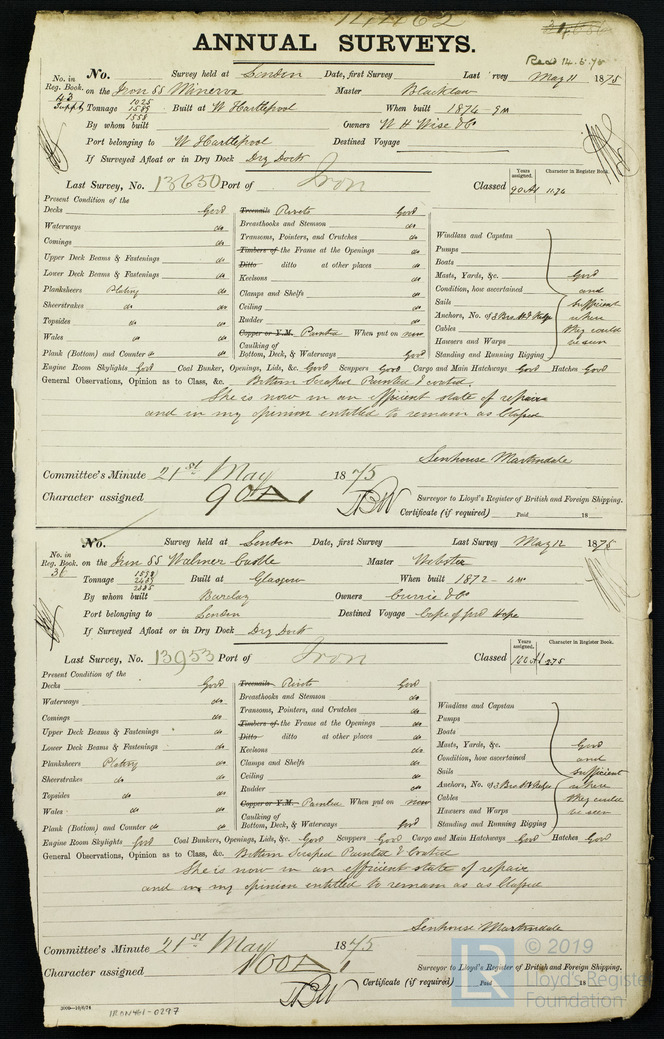 14462
ANNUAL SURVEYS.
Recd 14.5.75
No. Survey held at London Date, first Survey Last Survey May 11 1875
No. in Reg. Book. on the Iron SS Minerva Master Blacklaw
43 Suppt Tonnage 1025 1589 1558 Built at W Hartlepool When built 1874 - 9m
By whom built Owners W H Wise & Co
Port belonging to W Hartlepool Destined Voyage
If Surveyed Afloat or in Dry Dock Dry Dock
Last Survey, No. 13650 Port of Iron Classed
Years assigned. Character in Register Book.
90A1 11.74
Present Condition of the
Decks Good
Waterways do
Comings do
Upper Deck Beams & Fastenings do
Lower Deck Beams & Fastenings do
Planksheers Plating do
Sheerstrakes do do
Topsides do do
Wales do do
Plank (Bottom) and Counter do do
Treenails Rivets Good
Breasthooks and Stemson do
Transoms, Pointers, and Crutches do
Timbers of the Frame at the Openings do
Ditto ditto at other places do
Keelsons do
Clamps and Shelfs do
Ceiling do
Rudder do
Copper or Y.M. Painted When put on now
Caulking of
Bottom, Deck, & Waterways Good
Windlass and Capstan
Pumps
Boats
Masts, Yards, &c.
Condition, how ascertained
Sails
Anchors, No. of 3 Brs
Cables
Hawsers and Warps
Standing and Running Rigging
Good
and
sufficient
where
they could
be seen
Engine Room Skylights Good Coal Bunker, Openings, Lids, &c. Good Scuppers Good Cargo and Main Hatchways Good Hatches Good
General Observations, Opinion as to Class, &c. Bottom Scraped Painted & coated.
She is now in an efficient state of repair
and in my opinion entitled to remain as classed
Senhouse Martindale
Committee's Minute 21st May 1875
Character assigned 90A1
TBW
Surveyor to Lloyd's Register of British and Foreign Shipping.
Certificate (if required) Paid 18
No. Survey held at London Date, first Survey Last Survey May 12 1875
No. in Reg. Book. on the Iron SS Walmer Castle Master Webster
36 Tonnage Built at Glasgow When built 1872 - 4m
By whom built Barclay Owners Currie & Co
Port belonging to London Destined Voyage Cape of Good Hope
If Surveyed Afloat or in Dry Dock Dry Dock
Last Survey, No. 13953 Port of Iron Classed
Years assigned. Character in Register Book.
100A1 2.75
Present Condition of the
Decks Good
Waterways do
Comings do
Upper Deck Beams & Fastenings do
Lower Deck Beams & Fastenings do
Planksheers Plating do
Sheerstrakes do do
Topsides do do
Wales do do
Plank (Bottom) and Counter do do
Treenails Rivets Good
Breasthooks and Stemson do
Transoms, Pointers, and Crutches do
Timbers of the Frame at the Openings do
Ditto ditto at other places do
Keelsons do
Clamps and Shelfs do
Ceiling do
Rudder do
Copper or Y.M. Painted When put on now
Caulking of
Bottom, Deck, & Waterways Good
Windlass and Capstan
Pumps
Boats
Masts, Yards, &c.
Condition, how ascertained
Sails
Anchors, No. of 3 Brs
Cables
Hawsers and Warps
Standing and Running Rigging
Good
and
sufficient
where
they could
be seen
Engine Room Skylights Good Coal Bunkers, Openings, Lids, &c. Good Scuppers Good Cargo and Main Hatchways Good Hatches Good
General Observations, Opinion as to Class, &c. Bottom Scraped Painted & Coated
She is now in an efficient state of repair
and in my opinion entitled to remain as as classed
Senhouse Martindale
Committee's Minute 21st May 1875
Character assigned 100A1
TBW
Surveyor to Lloyd's Register of British and Foreign Shipping.
Certificate (if required) Paid 18
IRON401-0297
LR © 2019
Lloyd's Register
Foundation